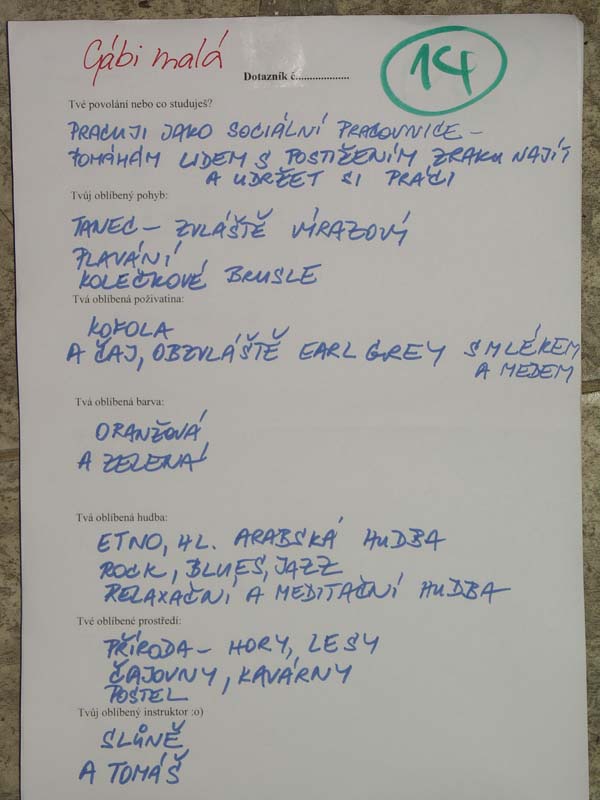 Gábi malá
14
Dotazník č...................
Tvé povolání nebo co studuješ?
PRACUJI JAKO SOCIÁLNÍ PRACOVNICE –
POMÁHÁM LIDEM S POSTIŽENÍM ZRAKU NAJÍT
A UDRŽET SI PRÁCI
Tvůj oblíbený pohyb:
TANEC – ZVLÁŠTĚ VÍRAZOVÝ
PLAVÁNÍ
KOLEČKOVÉ BRUSLE
Tvá oblíbená poživatina:
KOFOLA
A ČAJ, OBZVLÁŠTĚ EARL GREY S MLÉKEM
A MEDEM
Tvá oblíbená barva:
ORANŽOVÁ
A ZELENÁ
Tvá oblíbená hudba:
ETNO, HL. ARABSKÁ HUDBA
ROCK, BLUES, JAZZ
RELAXAČNÍ A MEDITAČNÍ HUDBA
Tvé oblíbené prostředí:
PŘÍRODA – HORY, LESY
ČAJOVNY, KAVÁRNY
POSTEL
Tvůj oblíbený instruktor :o)
SLŮNĚ
A TOMÁŠ